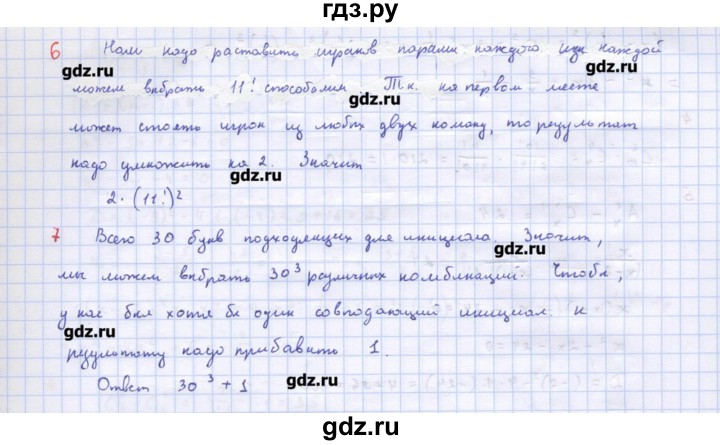 гдз.ру
6 Нам надо раставить игроков парами. каждого из каждой
gdz.ru gdz.ru
можем выбрать 11! способами. Т.к. на первом месте
gdz.ru
может стоять игрок из любых двух команд, то результат
надо умножить на 2. Значит
gdz.ru
2·(11!)²
7 Всего 30 букв подходящих для инициала. Значит,
gdz.ru
мы можем выбрать 30³ различных комбинаций. Чтобы,
у нас был хотя бы один совпадающий инициал. к
gdz.ru
результату надо прибавить 1.
Ответ 30³+1
gdz.ru
gdz.ru